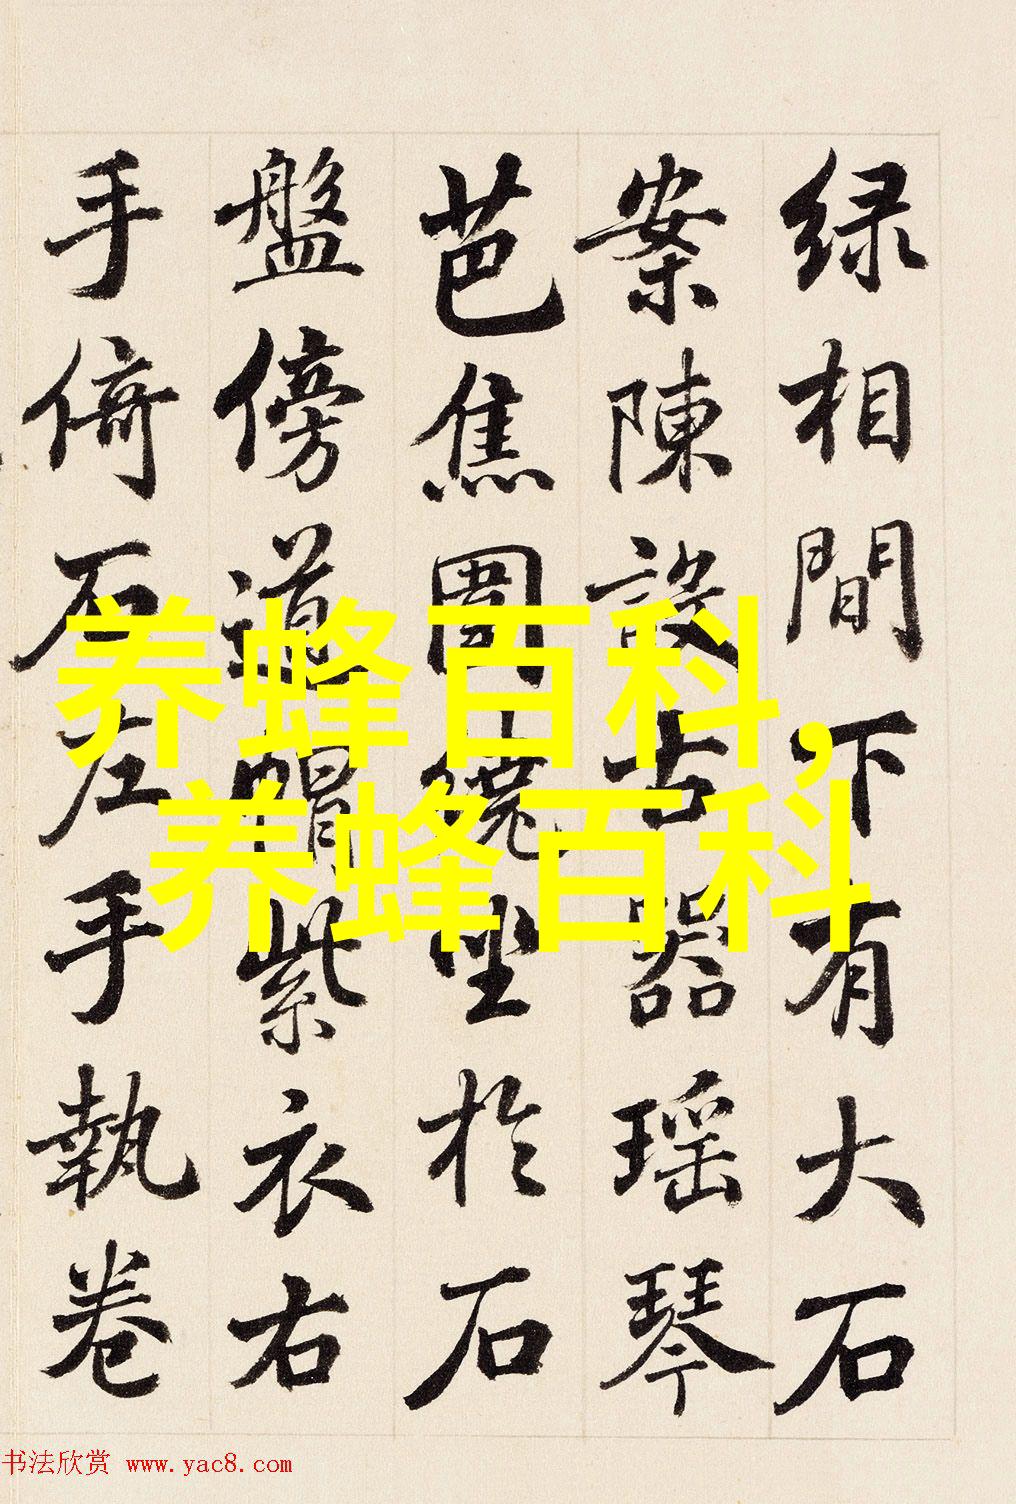 绿相間下有大石
案陳設古器瑶琴
芭焦圍繞坐於石
盤傍道帽紫衣右
手倚石左手執卷
养蜂百科,
养蜂百科
书法欣赏 www.yac8.com